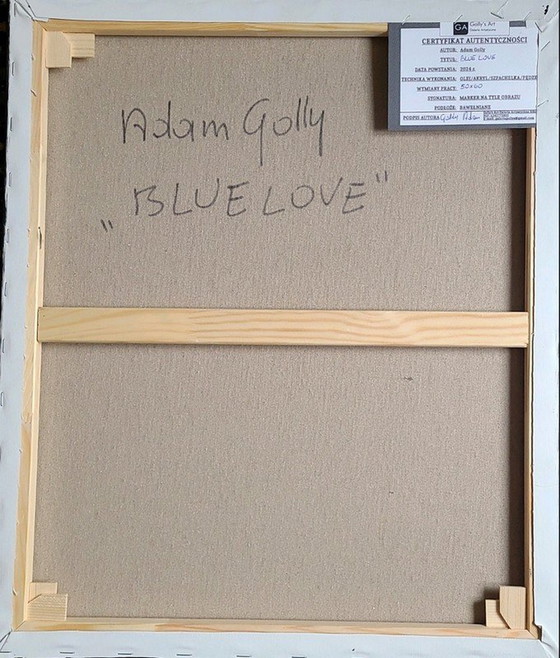 GA Golly's Art
CERTYFIKAT AUTENTYCZNOŚCI
AUTOR: Adam Golly
TYTUŁ: BLUE LOVE
DATA POWSTANIA: 2024 r.
TECHNIKA WYKONANIA: OLEJ/AKRYL/SZPACHELKA/PĘDZE
WYMIARY PRACY: 50x60
SYGNATURA: MARKER NA TYLE OBRAZU
PODŁOŻE: BAWEŁNIANE
PODPIS AUTORA Golly Adam
Adam Golly
„BLUE LOVE"